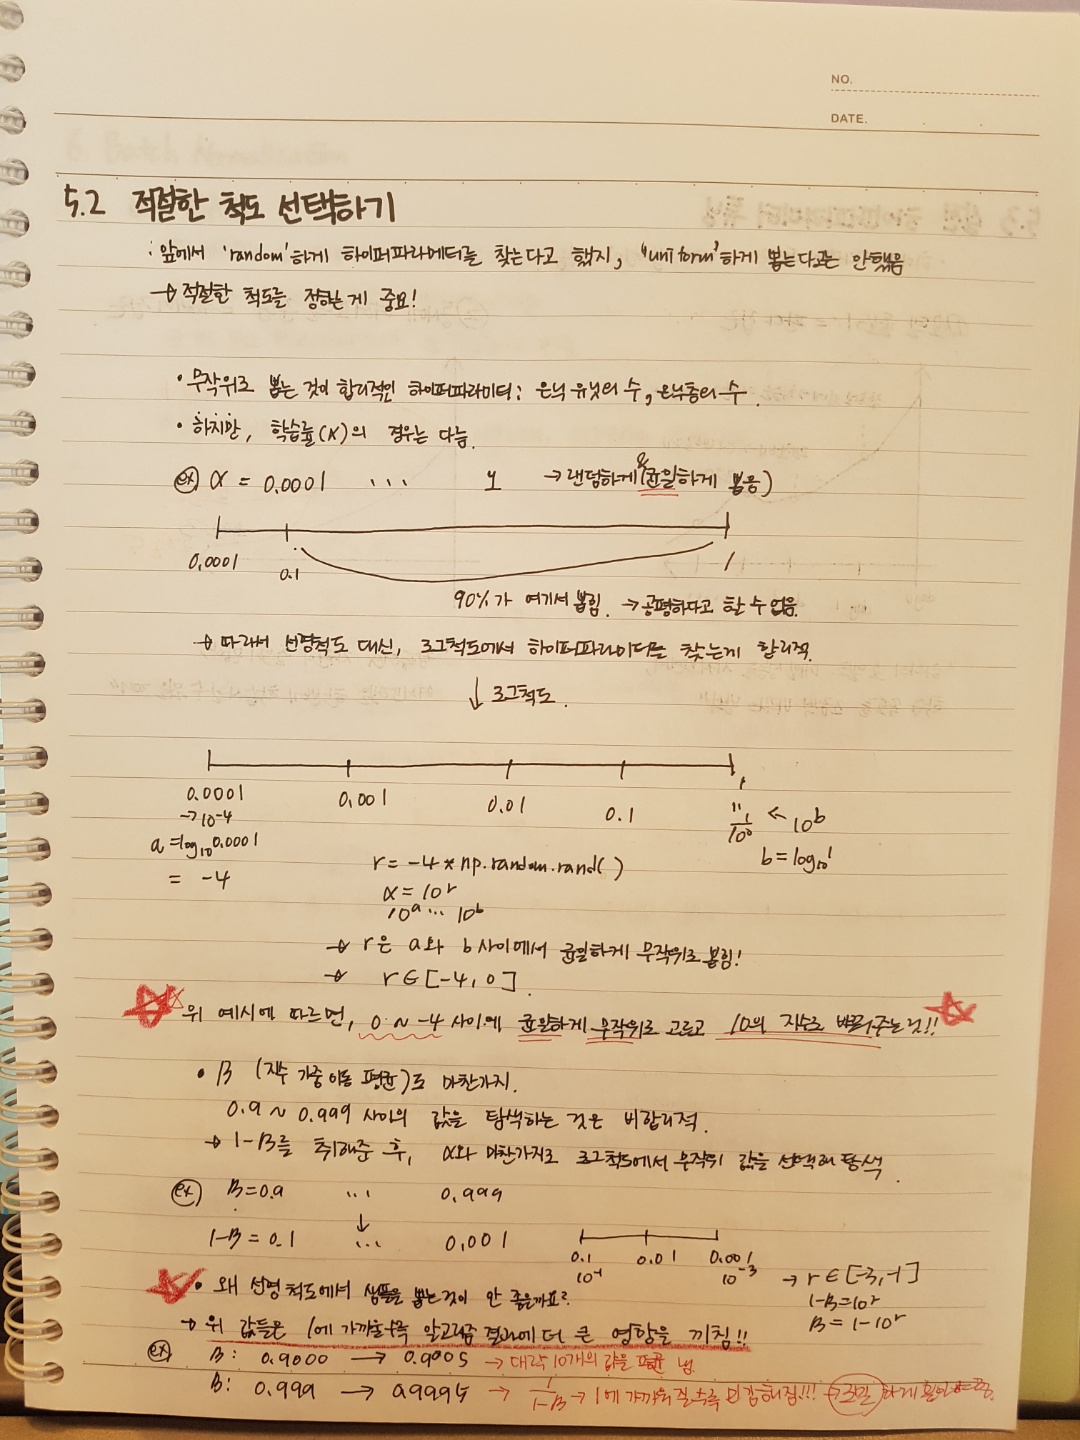 NO.
DATE.
5.2 적절한 척도 선택하기
: 앞에서 'random'하게 하이퍼파라메터를 찾는다고 했지, "uniform"하게 뽑는다고는 안했음
→ 적절한 척도를 정하는게 중요!
• 무작위로 뽑는 것이 합리적인 하이퍼파라미터: 은닉 유닛의 수, 은닉층의 수
• 하지만, 학습률(α)의 경우는 다름.
ex) α = 0.0001 ... 1 → 랜덤하게 & (균일하게 뽑음)
0.0001 0.1 1
90%가 여기서 뽑힘. → 공평하다고 할 수 없음.
→ 따라서 선형척도 대신, 로그척도에서 하이퍼파라미터를 찾는게 합리적.
↓ 로그척도.
0.0001 0.001 0.01 0.1 1
→ 10⁻⁴
"
10⁰ ← 10ᵇ
a = log₁₀0.0001
b = log₁₀1
= -4
r = -4 * np.random.rand( )
α = 10ʳ
10ᵃ ... 10ᵇ
→ r은 a와 b 사이에서 균일하게 무작위로 뽑힘!
→ r ∈ [-4, 0].
위 예시에 따르면, 0 ~ -4 사이에 균일하게 무작위로 고르고 10의 지수로 바꿔주는것!!
• B (지수 가중 이동 평균)도 마찬가지.
0.9 ~ 0.999 사이의 값을 탐색하는 것은 비합리적.
→ 1-B를 취해준 후, α와 마찬가지로 로그척도에서 무작위 값을 선택해 탐색.
ex) B=0.9 ... 0.999
↓
1-B = 0.1 ... 0.001
0.1 0.01 0.001
10⁻¹ 10⁻³
→ r ∈ [-3, -1]
1-B = 10ʳ
B = 1-10ʳ
• 왜 선형 척도에서 샘플을 뽑는것이 안 좋을까요?
→ 위 값들은 1에 가까울수록 알고리즘 결과에 더 큰 영향을 끼침!!
ex) B: 0.9000 → 0.9005 → 대략 10개의 값을 평균 냄.
B: 0.999 → 0.9995 → 1/1-B → 1에 가까워 질수록 민감해짐!!! →